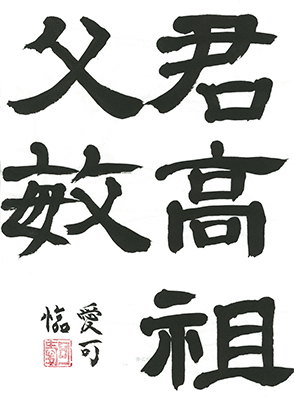 君高祖
父敏
愛可
臨